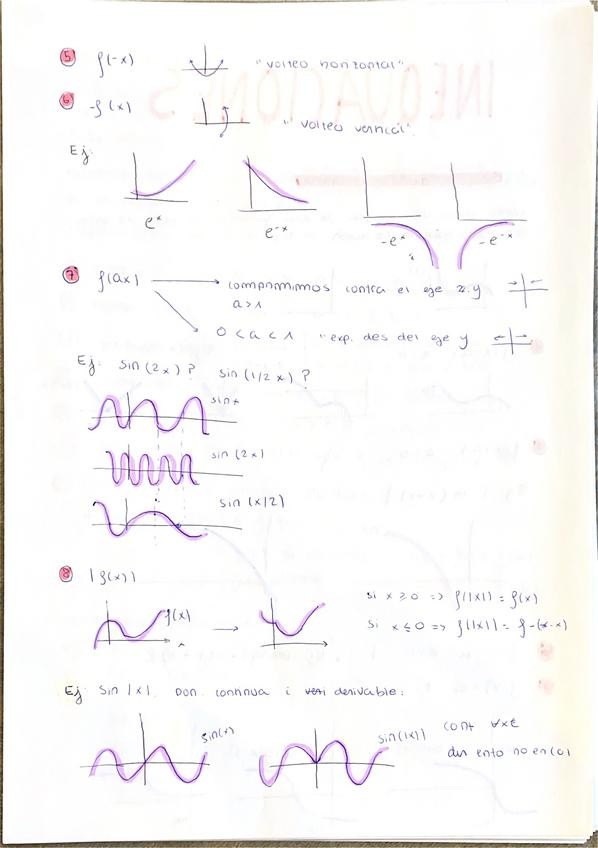 5 f(-x) "volteo horizontal"
6 -f(x) "volteo vertical".
Ej:
e^x e^-x -e^x -e^-x
7 f(ax) → comprimimos contra el eje y
a>1
0 < a < 1 "exp. des del eje y
Ej: sin(2x)? sin(1/2 x)?
sin x
sin(2x)
sin(x/2)
8 |f(x)|
f(x)
x
si x ≥ 0 => f(|x|) = f(x)
si x ≤ 0 => f(|x|) = f
Ej: sin |x|. Don. continua i derivable:
sin(x) sin(|x|) cont ∀x∈
no en